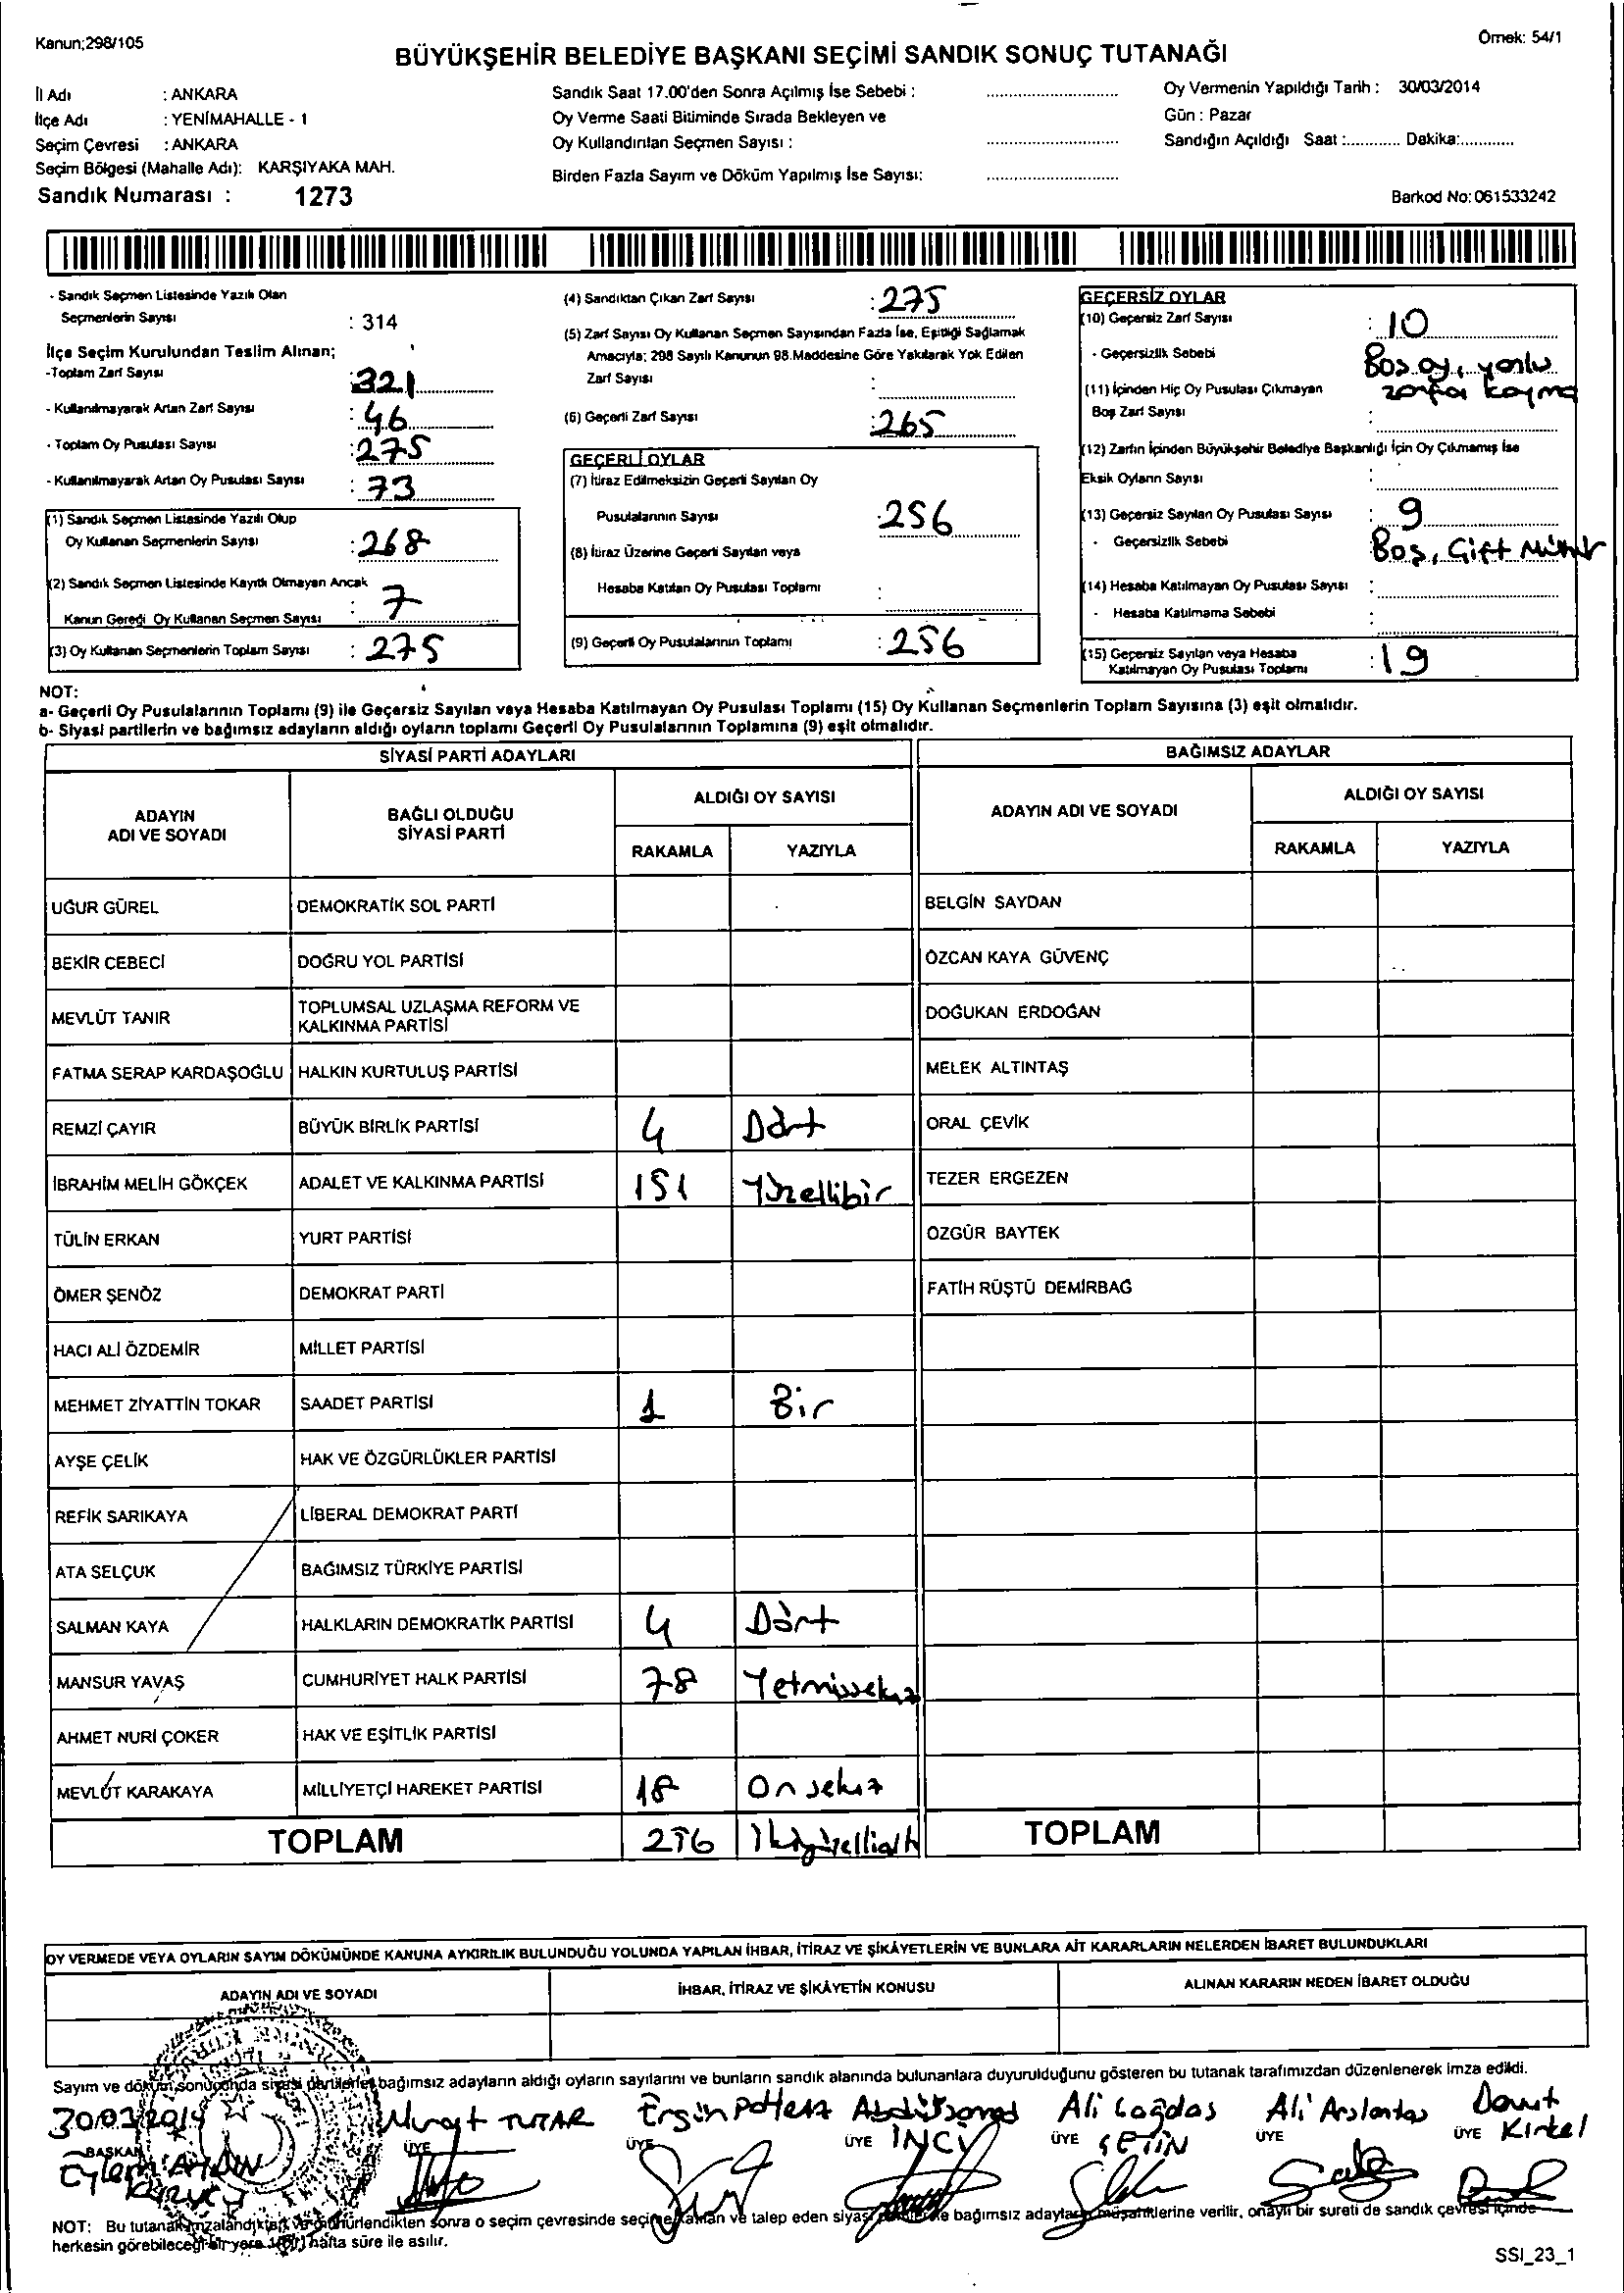 Kanun;298/105
Örnek: 54/1
BÜYÜKŞEHİR BELEDİYE BAŞKANI SEÇİMİ SANDIK SONUÇ TUTANAĞI
İl Adı : ANKARA
İlçe Adı : YENİMAHALLE - 1
Seçim Çevresi : ANKARA
Seçim Bölgesi (Mahalle Adı): KARŞIYAKA MAH.
Sandık Numarası : 1273
Sandık Saat 17.00'den Sonra Açılmış İse Sebebi :
Oy Verme Saati Bitiminde Sırada Bekleyen ve
Oy Kullandırılan Seçmen Sayısı :
Birden Fazla Sayım ve Döküm Yapılmış İse Sayısı:
Oy Vermenin Yapıldığı Tarih : 30/03/2014
Gün : Pazar
Sandığın Açıldığı Saat :............ Dakika:............
Barkod No: 061533242
- Sandık Seçmen Listesinde Yazılı Olan
Seçmenlerin Sayısı : 314
İlçe Seçim Kurulundan Teslim Alınan;
-Toplam Zarf Sayısı : 321
- Kullanılmayarak Artan Zarf Sayısı : 46
- Toplam Oy Pusulası Sayısı : 275
- Kullanılmayarak Artan Oy Pusulası Sayısı : 73
(1) Sandık Seçmen Listesinde Yazılı Olup
Oy Kullanan Seçmenlerin Sayısı : 268
(2) Sandık Seçmen Listesinde Kayıtlı Olmayan Ancak
Kanun Gereği Oy Kullanan Seçmen Sayısı : 7
(3) Oy Kullanan Seçmenlerin Toplam Sayısı : 275
(4) Sandıktan Çıkan Zarf Sayısı : 275
(5) Zarf Sayısı Oy Kullanan Seçmen Sayısından Fazla İse, Eşitliği Sağlamak
Amacıyla; 298 Sayılı Kanunun 98.Maddesine Göre Yakılarak Yok Edilen
Zarf Sayısı :
(6) Geçerli Zarf Sayısı : 265
GEÇERLİ OYLAR
(7) İtiraz Edilmeksizin Geçerli Sayılan Oy
Pusulalarının Sayısı : 256
(8) İtiraz Üzerine Geçerli Sayılan veya
Hesaba Katılan Oy Pusulası Toplamı :
(9) Geçerli Oy Pusulalarının Toplamı : 256
GEÇERSİZ OYLAR
(10) Geçersiz Zarf Sayısı : 10
- Geçersizlik Sebebi Boş oy, yanlış
zarfa koyma
(11) İçinden Hiç Oy Pusulası Çıkmayan
Boş Zarf Sayısı :
(12) Zarfın İçinden Büyükşehir Belediye Başkanlığı İçin Oy Çıkmamış İse
Eksik Oyların Sayısı :
(13) Geçersiz Sayılan Oy Pusulası Sayısı : 9
- Geçersizlik Sebebi : Boş, Çift Mühür
(14) Hesaba Katılmayan Oy Pusulası Sayısı :
- Hesaba Katılmama Sebebi :
(15) Geçersiz Sayılan veya Hesaba
Katılmayan Oy Pusulası Toplamı : 19
NOT:
a- Geçerli Oy Pusulalarının Toplamı (9) ile Geçersiz Sayılan veya Hesaba Katılmayan Oy Pusulası Toplamı (15) Oy Kullanan Seçmenlerin Toplam Sayısına (3) eşit olmalıdır.
b- Siyasi partilerin ve bağımsız adayların aldığı oyların toplamı Geçerli Oy Pusulalarının Toplamına (9) eşit olmalıdır.
SİYASİ PARTİ ADAYLARI
BAĞIMSIZ ADAYLAR
ADAYIN
ADI VE SOYADI
BAĞLI OLDUĞU
SİYASİ PARTİ
ALDIĞI OY SAYISI
RAKAMLA YAZIYLA
ADAYIN ADI VE SOYADI
ALDIĞI OY SAYISI
RAKAMLA YAZIYLA
UĞUR GÜREL DEMOKRATİK SOL PARTİ BELGİN SAYDAN
BEKİR CEBECİ DOĞRU YOL PARTİSİ ÖZCAN KAYA GÜVENÇ
MEVLÜT TANIR TOPLUMSAL UZLAŞMA REFORM VE
KALKINMA PARTİSİ DOĞUKAN ERDOĞAN
FATMA SERAP KARDAŞOĞLU HALKIN KURTULUŞ PARTİSİ MELEK ALTINTAŞ
REMZİ ÇAYIR BÜYÜK BİRLİK PARTİSİ 4 Dört ORAL ÇEVİK
İBRAHİM MELİH GÖKÇEK ADALET VE KALKINMA PARTİSİ 151 Yüzellibir TEZER ERGEZEN
TÜLİN ERKAN YURT PARTİSİ ÖZGÜR BAYTEK
ÖMER ŞENÖZ DEMOKRAT PARTİ FATİH RÜŞTÜ DEMİRBAĞ
HACI ALİ ÖZDEMİR MİLLET PARTİSİ
MEHMET ZİYATTİN TOKAR SAADET PARTİSİ 1 Bir
AYŞE ÇELİK HAK VE ÖZGÜRLÜKLER PARTİSİ
REFİK SARIKAYA LİBERAL DEMOKRAT PARTİ
ATA SELÇUK BAĞIMSIZ TÜRKİYE PARTİSİ
SALMAN KAYA HALKLARIN DEMOKRATİK PARTİSİ 4 Dört
MANSUR YAVAŞ CUMHURİYET HALK PARTİSİ 78 Yetmişsekiz
AHMET NURİ ÇOKER HAK VE EŞİTLİK PARTİSİ
MEVLÜT KARAKAYA MİLLİYETÇİ HAREKET PARTİSİ 18 Onsekiz
TOPLAM 256 İkiyüzellialtı TOPLAM
OY VERMEDE VEYA OYLARIN SAYIM DÖKÜMÜNDE KANUNA AYKIRILIK BULUNDUĞU YOLUNDA YAPILAN İHBAR, İTİRAZ VE ŞİKÂYETLERİN VE BUNLARA AİT KARARLARIN NELERDEN İBARET BULUNDUKLARI
ADAYIN ADI VE SOYADI İHBAR, İTİRAZ VE ŞİKÂYETİN KONUSU ALINAN KARARIN NEDEN İBARET OLDUĞU
Sayım ve döküm sonucunda siyasi partilerle bağımsız adayların aldığı oyların sayılarını ve bunların sandık alanında bulunanlara duyurulduğunu gösteren bu tutanak tarafımızdan düzenlenerek imza edildi.
30/03/2014 Murat TUTAR Ergin Ali Çağdaş Ali Arslantaş Davut
BAŞKAN ÜYE ÜYE ÜYE İNCİ ÜYE ÇETİN ÜYE ÜYE Kırkel
Eylem AYDIN
NOT: Bu tutanak imzalandıktan ve mühürlendikten sonra o seçim çevresinde seçime katılan ve talep eden siyasi partilerle bağımsız adayların müşahitlerine verilir, onaylı bir sureti de sandık çevresi içinde
herkesin görebileceği bir yere 1(bir) hafta süre ile asılır.
SSI_23_1